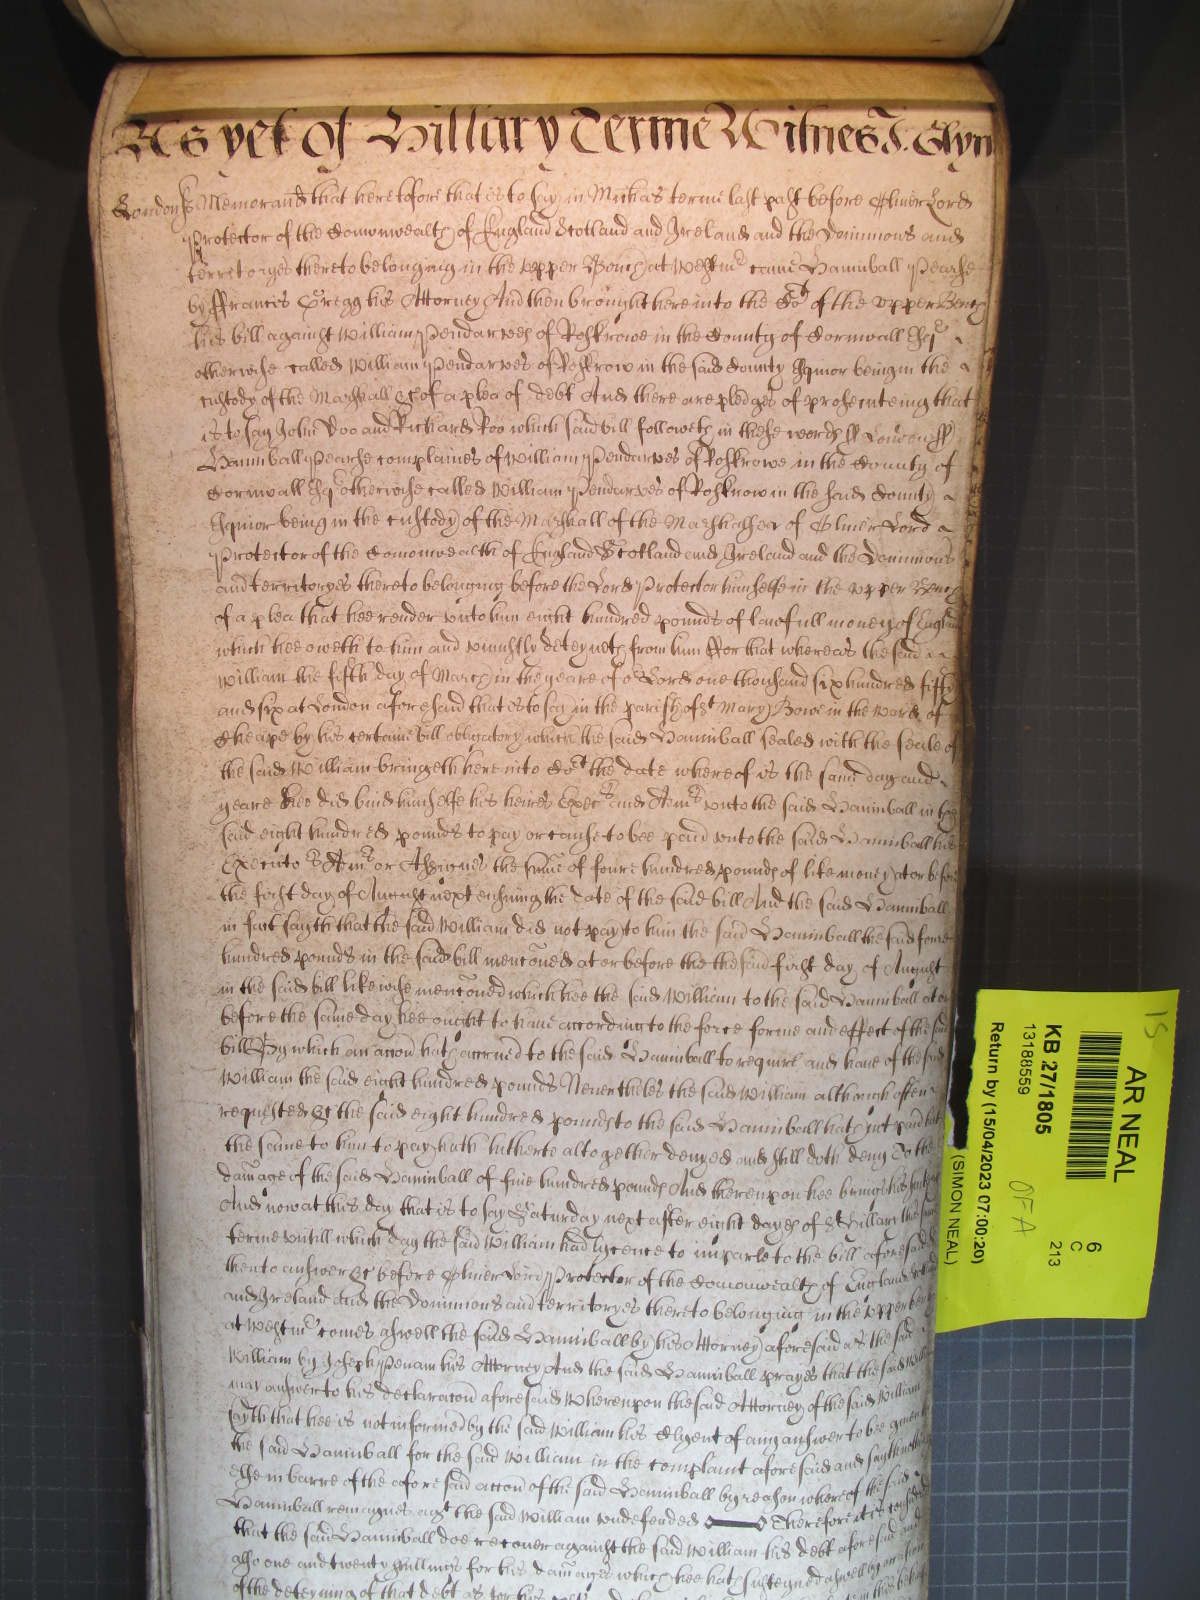 As yet of Hillary Terme Witnes J. Glyn
London ss Memorand that heretofore that is to say in Michas terme last past before Oliver Lord
Protector of the Comonwealth of England Scotland and Ireland and the Dominions and
territoryes thereto belonging in the upper Bench at Westmr came Hanniball Pearse
by Francis Gregg his Attorney And then brought here into the Cot of the upper Bench
his bill against William Pendarves of Roskrowe in the County of Cornwall Esqr
otherwise called William Pendarves of Roskrow in the said County Esquior being in the
custody of the Marshall &c of a plea of debt And there are pledges of prosecuteing that
is to say John Doo and Richard Roo which said bill followeth in these words ss London ss
Hanniball Pearse complaines of William Pendarves of Roskrowe in the County of
Cornwall Esqr otherwise called William Pendarves of Roskrow in the said County
Esquior being in the custody of the Marshall of the Marshallsea of Oliver Lord
Protector of the Comonwealth of England Scotland and Ireland and the Dominions
and territoryes thereto belonging before the Lord Protector himselfe in the upper Bench
of a plea that hee render unto him eight hundred pounds of lawfull money of England
which hee oweth to him and uniustly deteyneth from him ffor that whereas the said
William the fifth day of March in the yeare of or Lord one thousand six hundred fifty
and six at London aforesaid that is to say in the parish of St Mary Bowe in the Ward of
Cheape by his certaine bill obligatory which the said Hanniball sealed with the seale of
the said William bringeth here into Cot the date whereof is the same day and
yeare hee did bind himselfe his heires Execrs and Admrs unto the said Hanniball in the
said eight hundred pounds to pay or cause to bee paid unto the said Hanniball his
Executors Admrs or Assignes the sume of foure hundred pounds of like money at or before
the first day of August next ensuing the date of the said bill And the said Hanniball
in fact sayth that the said William did not pay to him the said Hanniball the said foure
hundred pounds in the said bill mencõned at or before the the said first day of August
in the said bill likewise mencõned which hee the said William to the said Hanniball at or
before the same day hee ought to have according to the force forme and effect of the said
bill By which an accõn hath accrued to the said Hanniball to require and have of the said
William the said eight hundred pounds Nevertheles the said William although often
requested &c the said eight hundred pounds to the said Hanniball hath not paid but
the same to him to pay hath hitherto altogether denyed and still doth deny To the
damage of the said Hanniball of five hundred pounds And thereupon hee brings his suite &c
And now at this day that is to say Saturday next after eight dayes of St Hillary this same
terme untill which day the said William had lycence to imparle to the bill aforesaid
then to answer &c before Oliver Lord Protector of the Comonwealth of England Scotland
and Ireland and the Dominions and territoryes thereto belonging in the upper bench
at Westmr comes aswell the said Hanniball by his Attorney aforesaid as the said
William by Joseph Penam his Attorney And the said Hanniball prayes that the said William
may answer to his declaracõn aforesaid Whereupon the said Attorney of the said William
sayth that hee is not informed by the said William his Clyent of any answer to bee given to
the said Hanniball for the said William in the complaint aforesaid and sayth nothing
else in barre of the aforesaid accõn of the said Hanniball by reason whereof the said
Hanniball remaynes agt the said William undefended Therefore it is considered
that the said Hanniball doe recover against the said William his debt aforesaid and
also one and twenty shillings for his damages which hee hath susteyned aswell by occasion
of the deteyning of that debt as for his
15
AR NEAL
6
C
213
KB 27/1805
13188559
OFA
Return by (15/04/2023 07:00:20)
(SIMON NEAL)